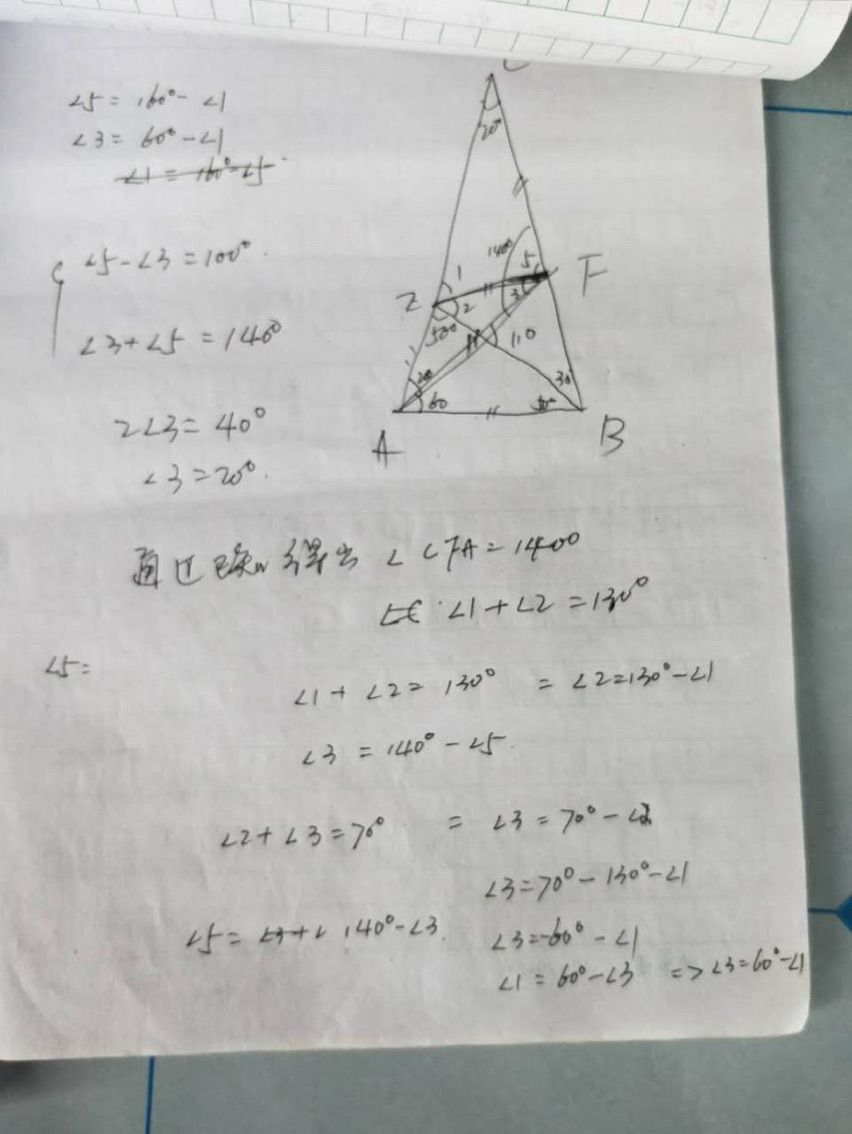 ∠5 = 160° - ∠1
∠3 = 60° - ∠1
∠1 = 160° - ∠5
∠5 - ∠3 = 100°
∠3 + ∠5 = 140°
2∠3 = 40°
∠3 = 20°.
C
20°
140°
5
F
1
Z
2
3
50°
110
20
30
60
50°
A
B
通过已知 得出 ∠CFA = 140°
∠1 + ∠2 = 130°
∠5 =
∠1 + ∠2 = 130° = ∠2 = 130° - ∠1
∠3 = 140° - ∠5.
∠2 + ∠3 = 70° = ∠3 = 70° - ∠2
∠3 = 70° - 130° - ∠1
∠5 = ∠3 + ∠ 140° - ∠3. ∠3 = -60° - ∠1
∠1 = 60° - ∠3 => ∠3 = 60° - ∠1